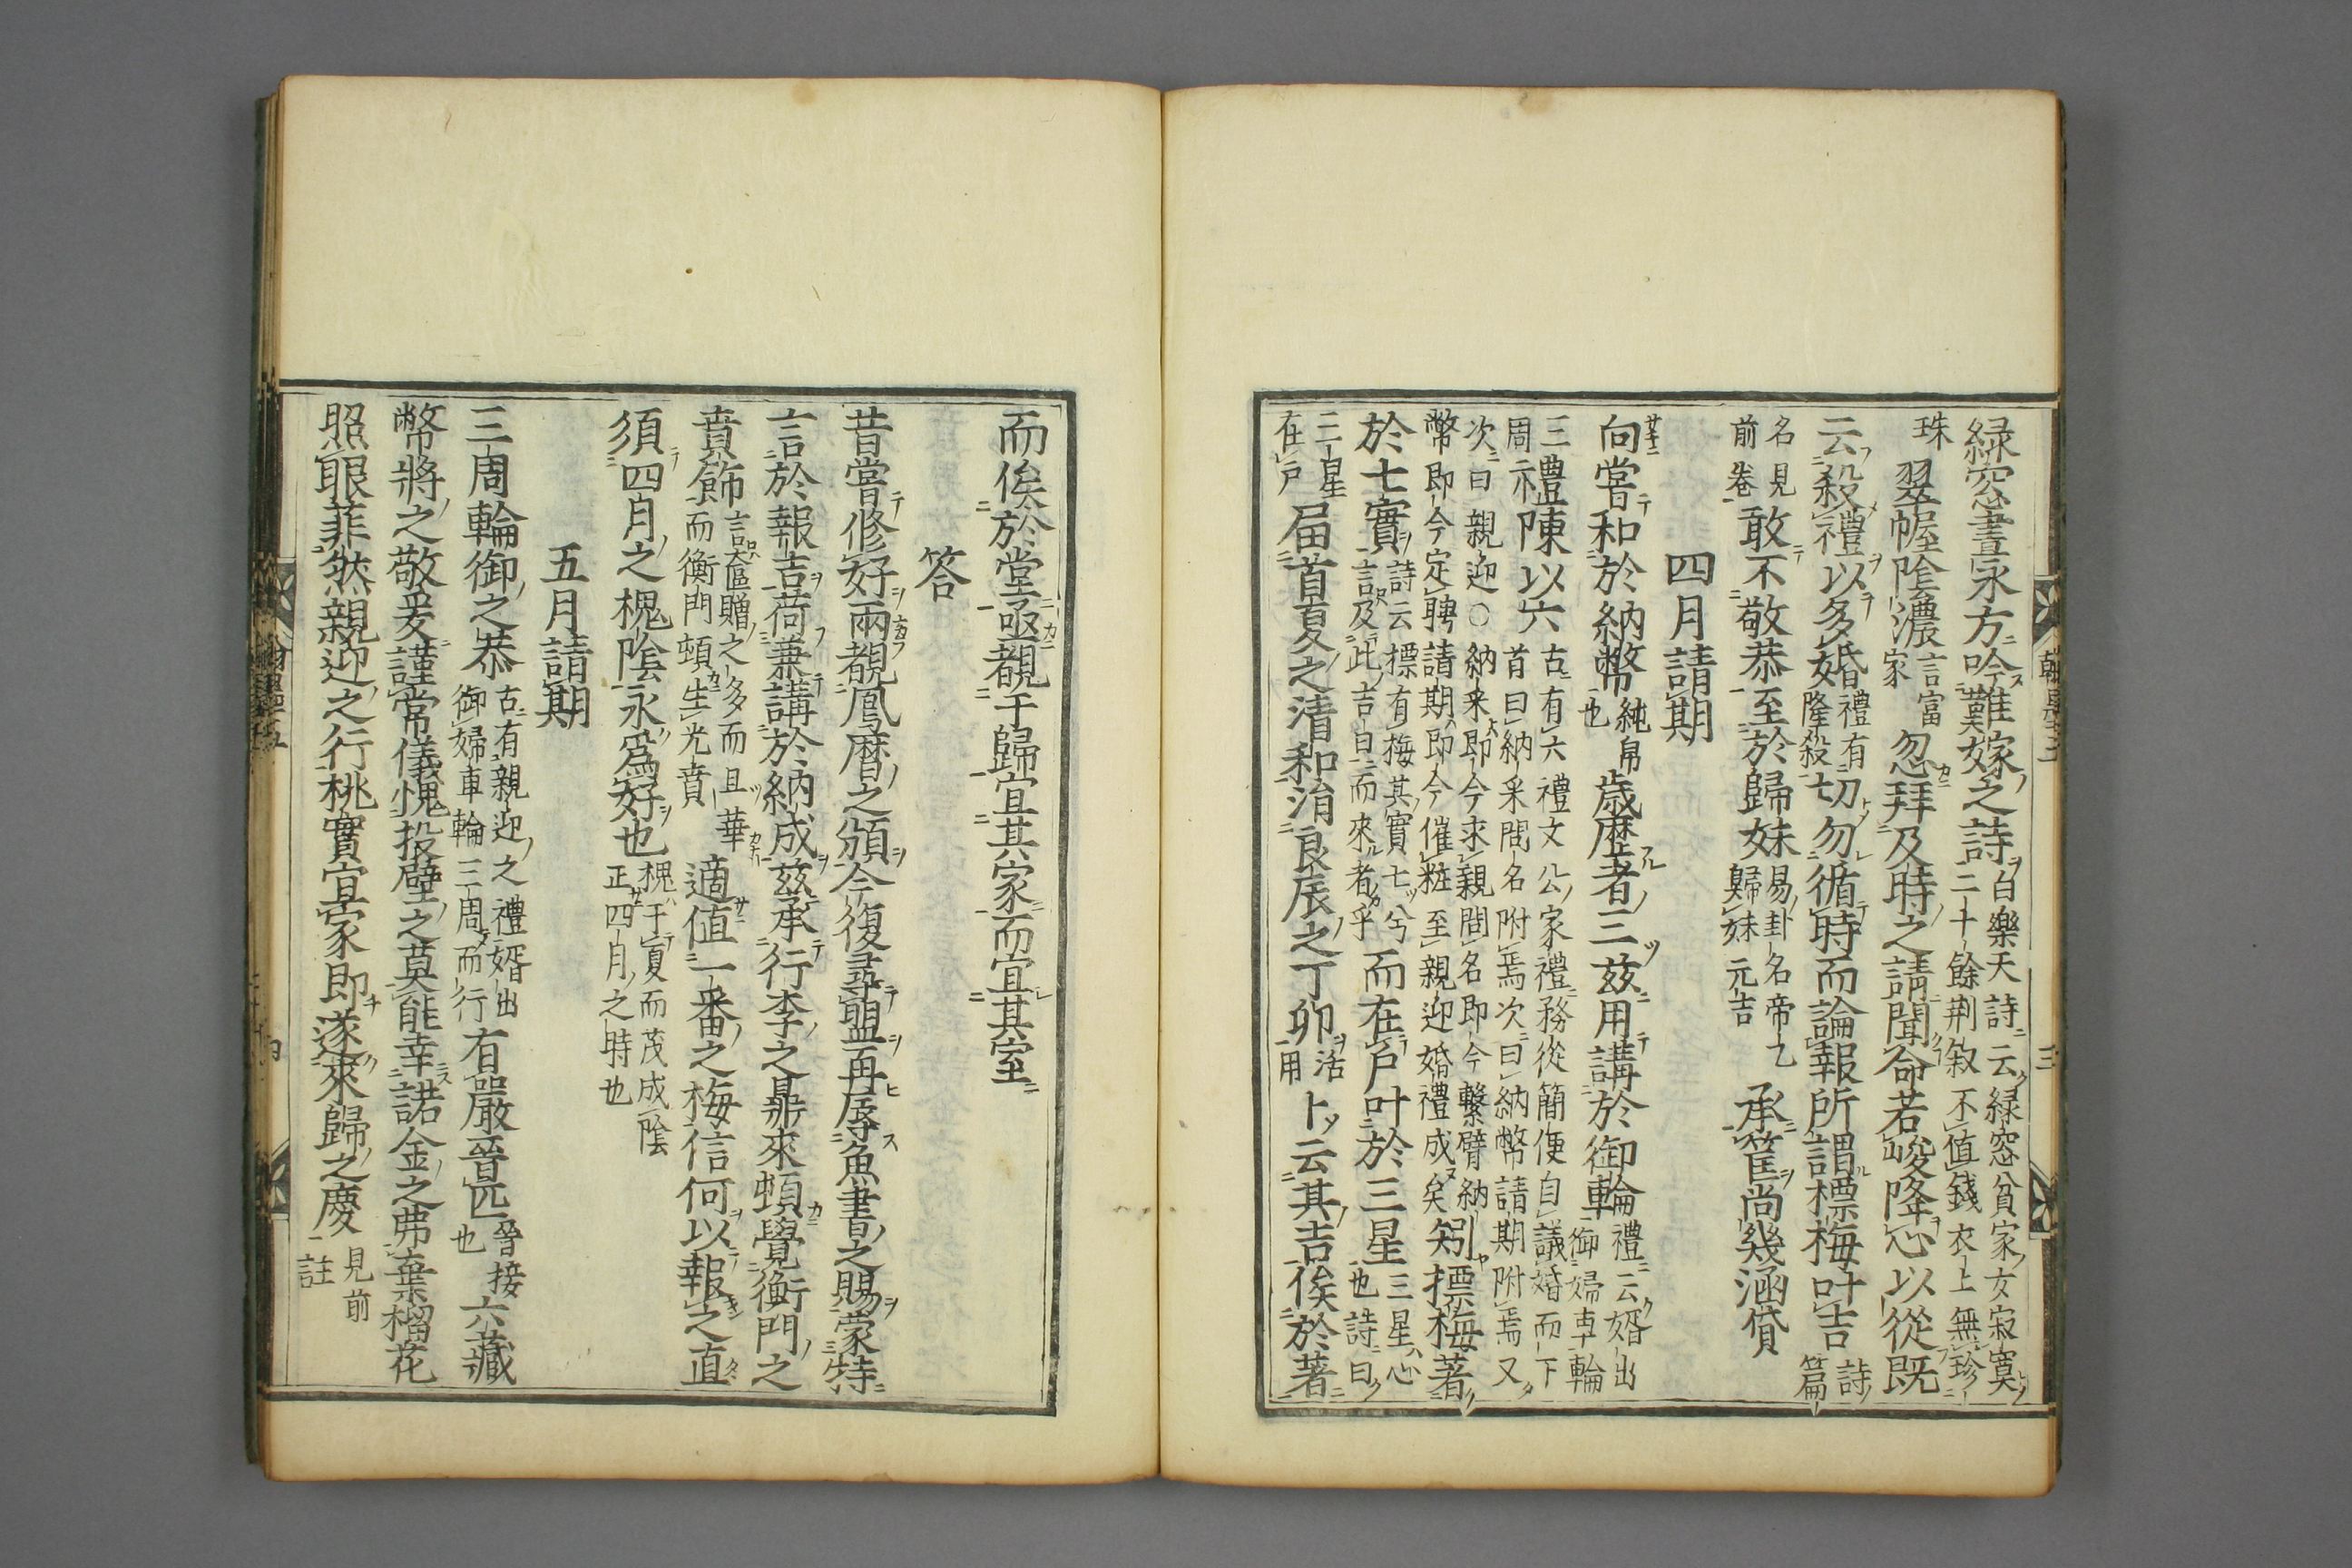 緑窓晝永方吟難嫁之詩白樂天詩云緑窓貧家女寂寞二十餘荆釵不値錢衣上無珍
珠翠幄陰濃言富家忽拜及時之請聞命若峻降心以從既
云殺禮以多婚禮有隆殺切勿循時而論報所謂摽梅叶吉詩篇
名見前巻敢不敬恭至於歸妹易卦名帝乙歸妹元吉承筐尚幾涵貸
四月請期
向嘗和於納幣純帛也歳歴者三玆用講於御輪禮云婿出御婦車輪
三周禮陳以六古有六禮文公家禮務從簡便自議婚而下首曰納采問名附焉次曰納幣請期附焉又
次曰親迎○納采即今求親問名即今繋臂納幣即今定聘請期即今催粧至親迎婚禮成矣矧摽梅著
於七實詩云摽有梅其實七兮言及此吉日而來者乎而在戸叶於三星三星心也詩曰
三星在戸届首夏之清和涓良辰之丁卯活用卜云其吉俟於著
而俟於堂亟覯于歸宜其家而宜其室
答
昔嘗修好兩覩鳳暦之頒今復尋盟再辱魚書之賜蒙特
言於報吉荷兼講於納成玆承行李之鼎來頓覺衡門之
賁飾言奩贈之多而且華而衡門頓生光賁適値一番之梅信何以報之直
須四月之槐陰永爲好也槐于夏而茂成陰正四月之時也
五月請期
三周輪御之恭古有親迎之禮婿出御婦車輪三周而行有嚴晉匹晉接也六藏
幣將之敬爰謹常儀愧投璧之莫能幸諾金之弗棄榴花
照眼菲然親迎之行桃實宜家即遂來歸之慶見前註